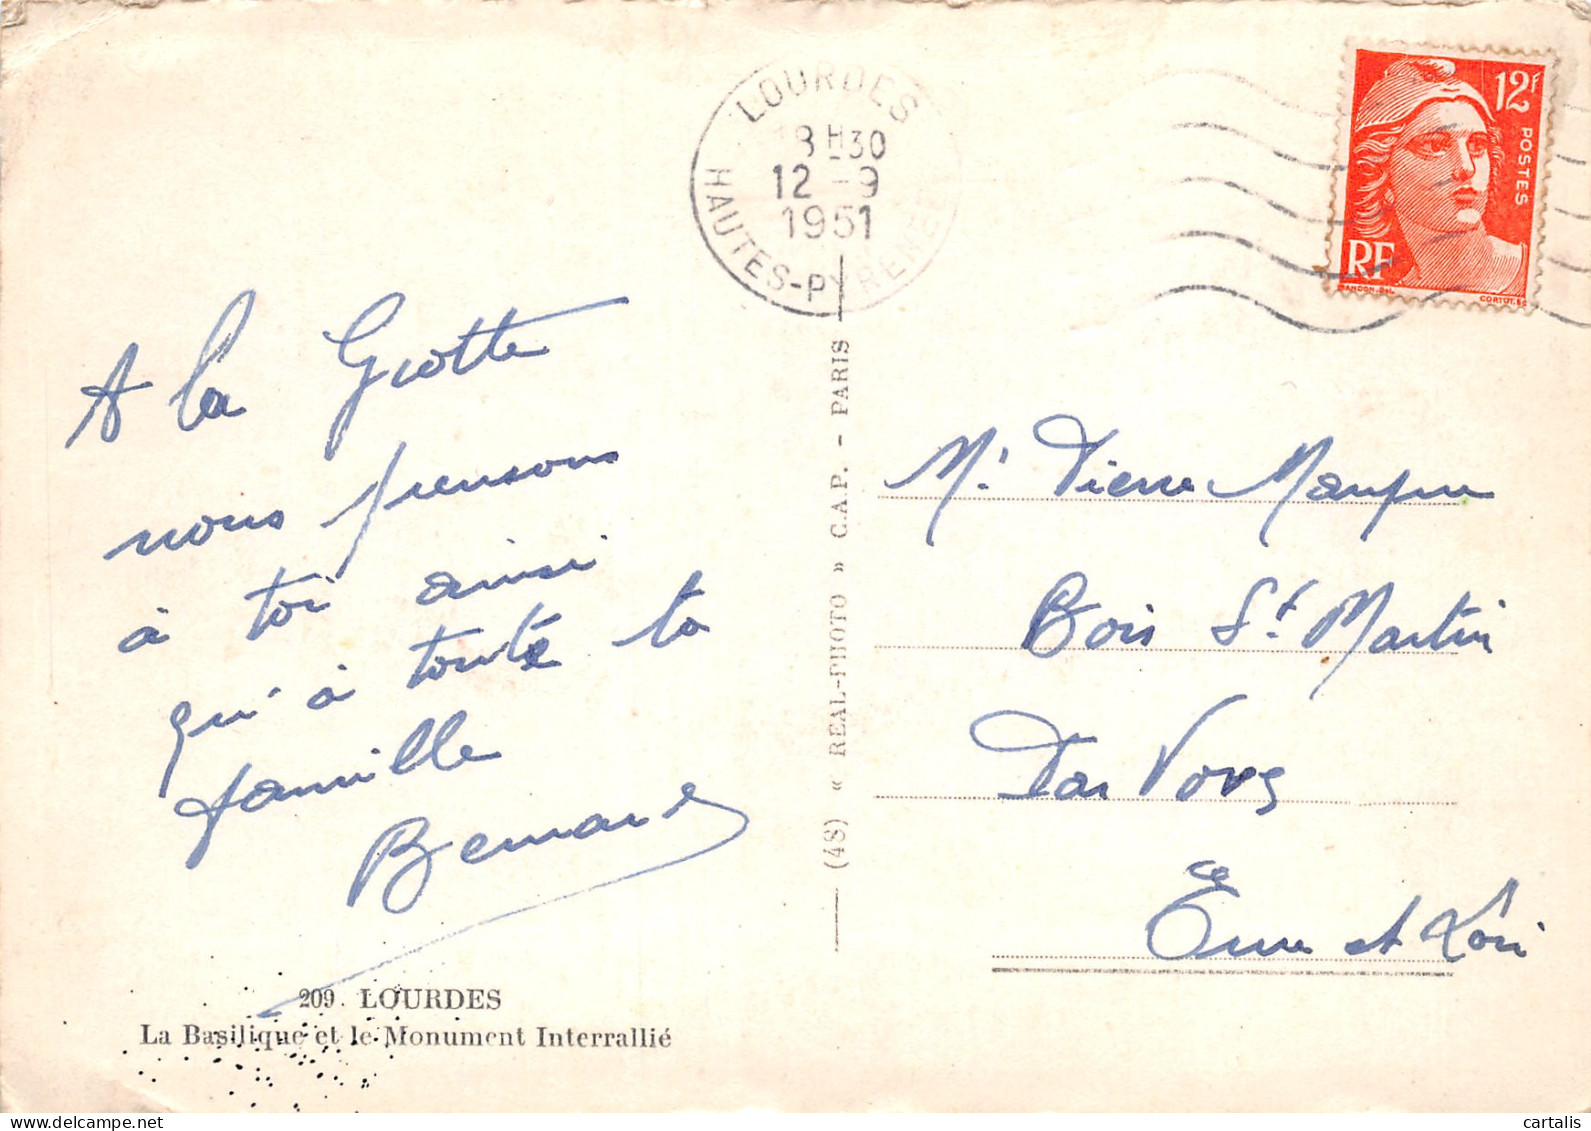 LOURDES
18H30
12-9
1951
HAUTES-PYRENEES
12F
POSTES
RF
GANDON.DEL.
CORTOT.SC
A la Grotte
nous pensons
à toi ainsi
qu'à toute ta
famille
Bernard
209. LOURDES
La Basilique et le Monument Interrallié
(48) « REAL-PHOTO » C.A.P. - PARIS
Mr Pierre
Bois St. Martin
Par Voves
Eure et Loir
cartalis
www.delcampe.net